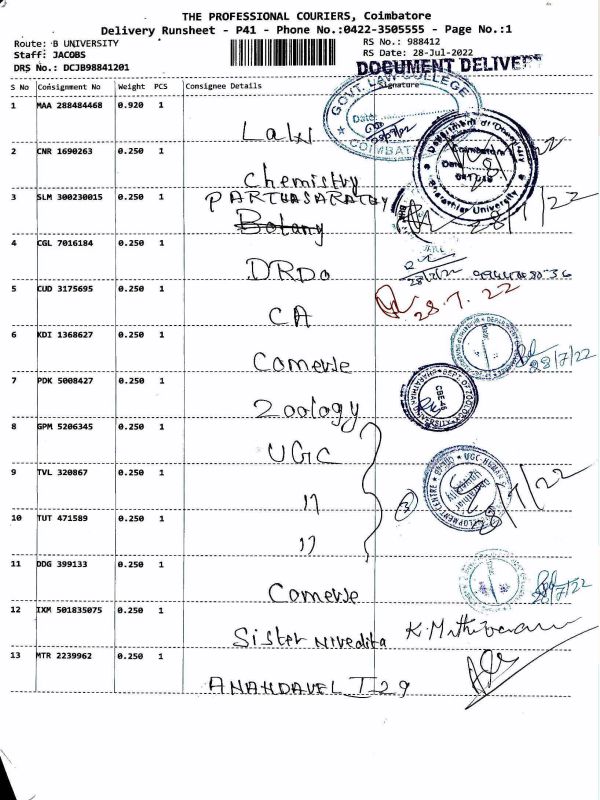 THE PROFESSIONAL COURIERS, Coimbatore
Delivery Runsheet - P41 - Phone No.:0422-3505555 - Page No.:1
Route: B UNIVERSITY
Staff: JACOBS
DRS No.: DCJB98841201
RS No.: 988412
RS Date: 28-Jul-2022
DOCUMENT DELIVERY
S No Consignment No Weight PCS Consignee Details Signature
1 MAA 288484468 0.920 1
Law
GOVT. LAW COLLEGE
Date:
COIMBAT
2 CNR 1690263 0.250 1
Chemistry
Department of
Coimbatore
Date
Bharathiar University
28/7/22
3 SLM 300230015 0.250 1
PARTHASARATHY
Botany
28/7/22
4 CGL 7016184 0.250 1
DRDO
28/7/22
5 CUD 3175695 0.250 1
CA
28.7.22
6 KDI 1368627 0.250 1
Comerse
28/7/22
7 PDK 5008427 0.250 1
Zoology
DEPT. OF ZOOLOGY
CBE-46
8 GPM 5206345 0.250 1
UGC
9 TVL 320867 0.250 1
"
3
UGC-HUMAN
DEVELOPMENT CENTRE
28/7/22
10 TUT 471589 0.250 1
"
11 DDG 399133 0.250 1
Comerse
28/7/22
12 IXM 501835075 0.250 1
Sister Nivedita
13 MTR 2239962 0.250 1
ANANDAVEL T 29